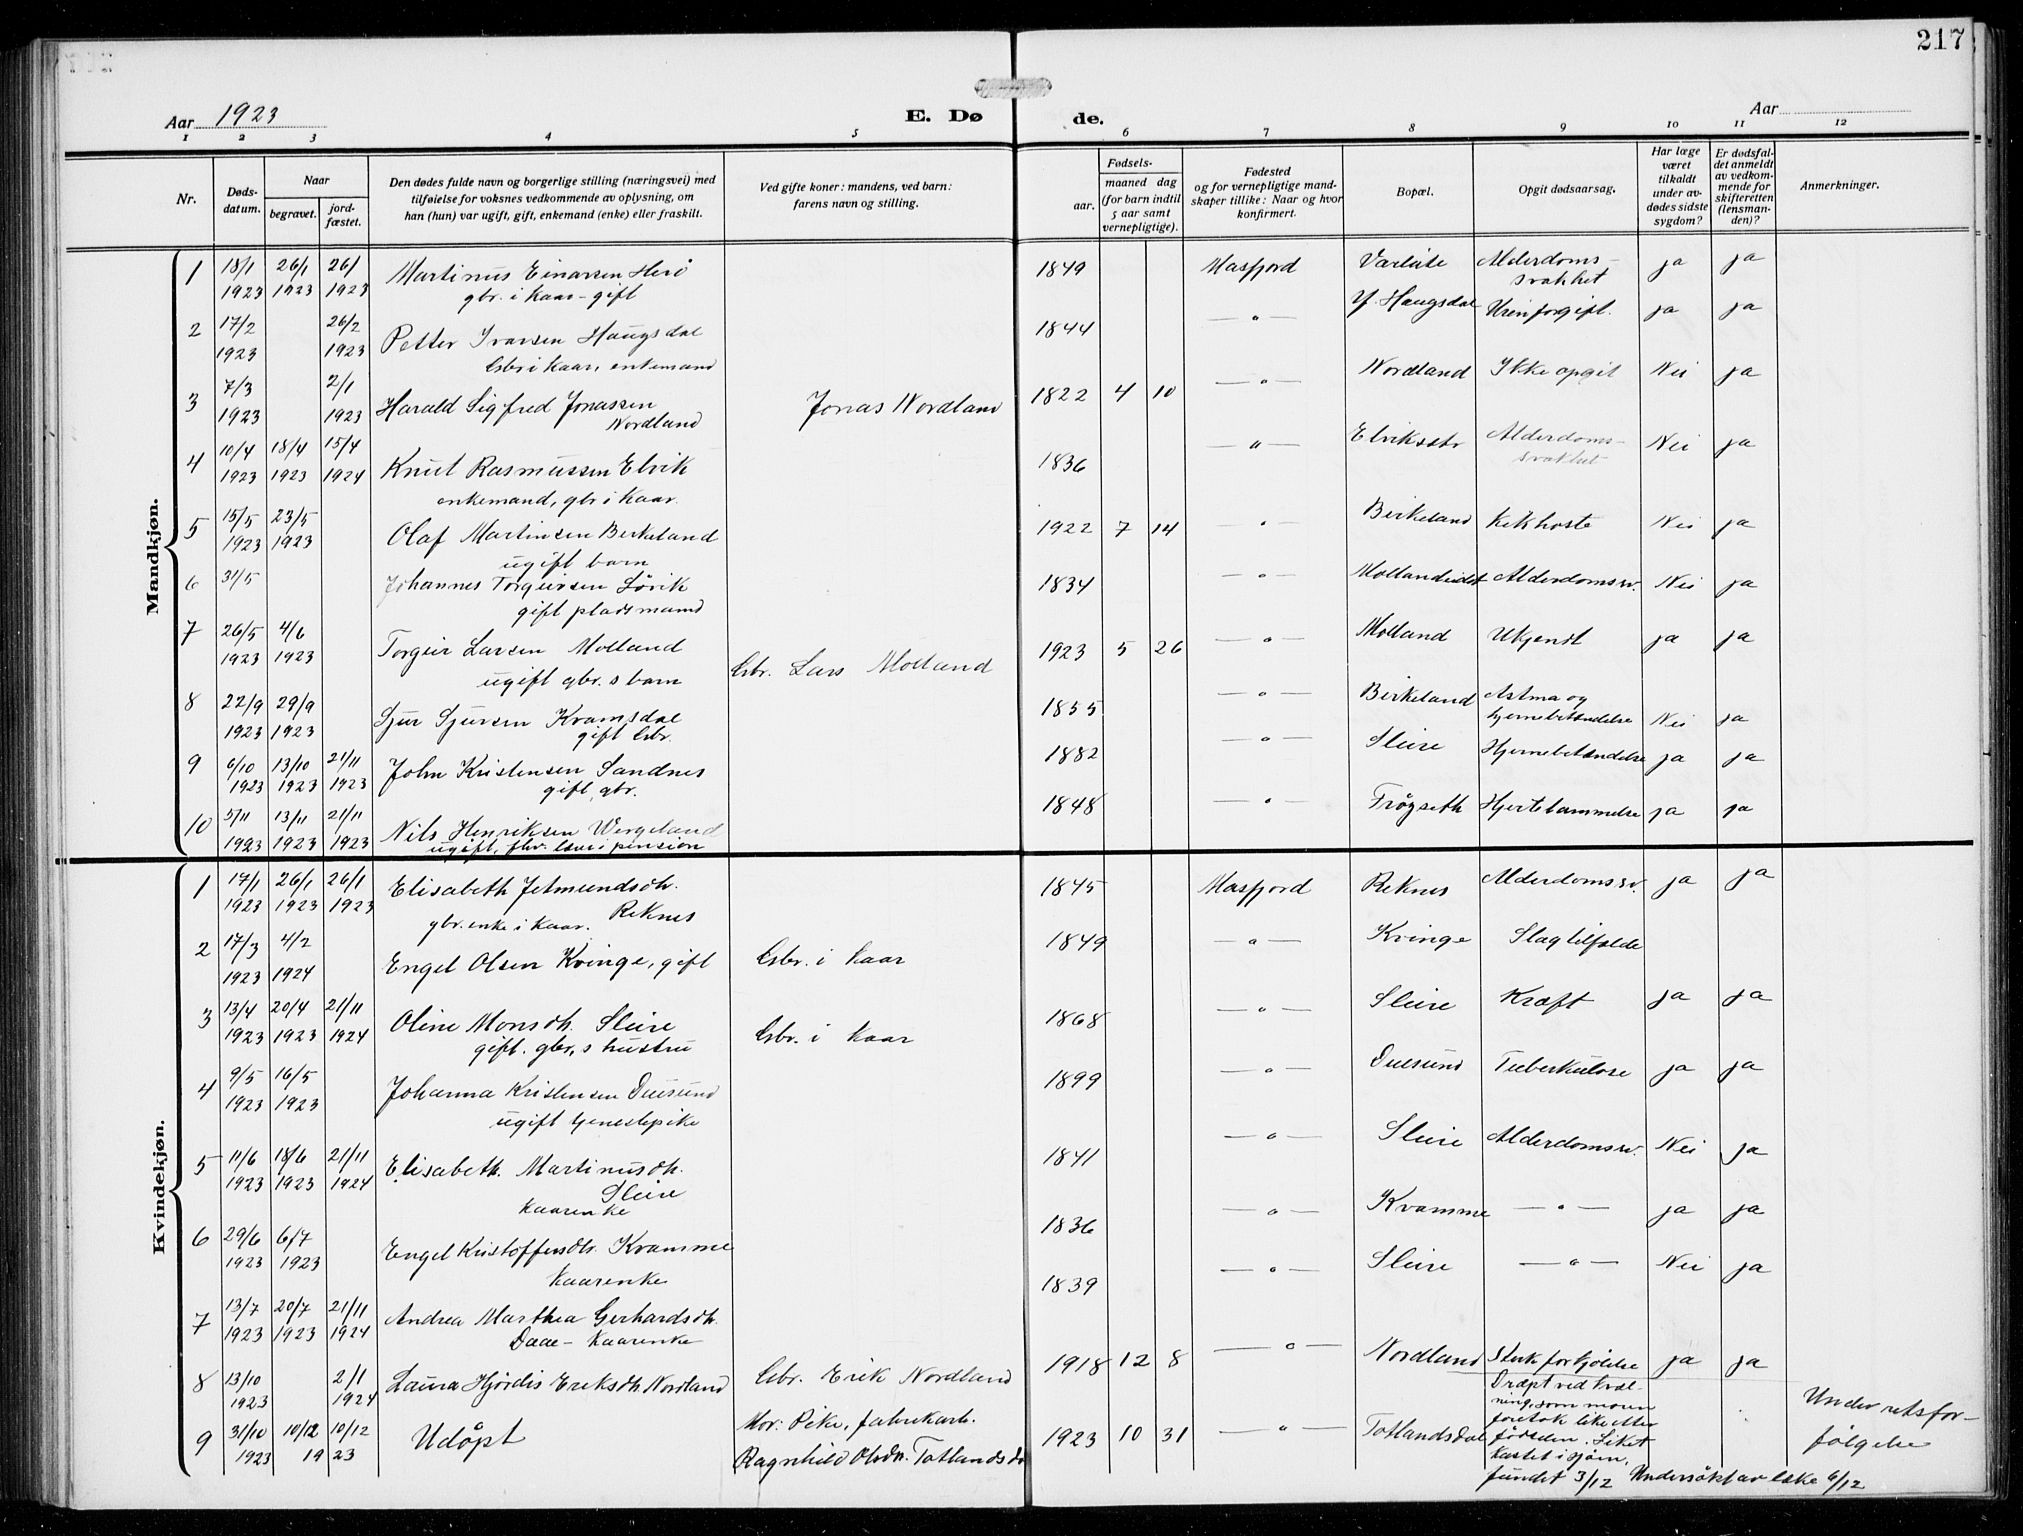 217
Aar 1923
E. Døde.
Aar
1 2 3 4 5 6 7 8 9 10 11 12
Nr.
Døds-datum.
Naar
begravet.
jord-fæstet.
Den dødes fulde navn og borgerlige stilling (næringsvei) med
tilføielse for voksnes vedkommende av oplysning, om
han (hun) var ugift, gift, enkemand (enke) eller fraskilt.
Ved gifte koner: mandens, ved barn:
farens navn og stilling.
Fødsels-
aar.
maaned dag
(for barn indtil
5 aar samt
vernepligtige).
Fødested
og for vernepligtige mand-
skaper tillike: Naar og hvor
konfirmert.
Bopæl.
Opgit dødsaarsag.
Har læge
været
tilkaldt
under av-
dødes sidste
sygdom?
Er dødsfal-
det anmeldt
av vedkom-
mende for
skifteretten
(lensman-
den)?
Anmerkninger.
Mandkjøn.
1 18/1 1923 26/1 1923 26/1 1923 Martinus Einarsen Herö 1849 Masfjord Alderdoms- ja ja
gbr. i kaar - gift svakhet
2 17/2 1923 26/2 1923 Petter Ivarsen Haugsdal 1844 — " — Y. Haugsdal Urinforgift. ja ja
Gbr i kaar, enkemand
3 7/3 1923 2/1 1923 Harald Sigfred Jonassen Jonas Nordland 1822 4 10 — " — Nordland Ikke opgit Nei ja
Nordland
4 10/4 1923 18/4 1923 15/4 1924 Knut Rasmussen Elvik 1836 — " — Alderdoms- Nei ja
enkemand, gbr i kaar. svakhet
5 15/5 1923 23/5 1923 Olaf Martinsen Birkeland 1922 7 14 — " — Birkeland Kikhoste Nei ja
ugift barn
6 31/5 Johannes Torgeirsen Lörik 1834 — " — Mollandeidet Alderdomssv. Nei ja
gift pladsmand
7 26/5 1923 4/6 1923 Torgeir Larsen Molland Gbr. Lars Molland 1923 5 26 — " — Molland Ukjendt ja ja
ugift gbr. s barn
8 22/9 1923 29/9 1923 Sjur Sjursen Kramsdal 1855 — " — Birkeland Astma og Nei ja
gift Gbr. hjernebetændelse
9 6/10 1923 13/10 1923 21/11 1923 John Kristensen Sandnes 1882 — " — Sleire Hjernebetændelse ja ja
gift, gbr.
10 5/11 1923 13/11 1923 21/11 1923 Nils Henriksen Wergeland 1848 — " — Frøyseth Hjertelammelse ja ja
ugift, fhv. i pension
Kvindekjøn.
1 17/1 1923 26/1 1923 26/1 1923 Elisabeth Jetmundsdh. 1845 Masfjord Reknes Alderdomssv. ja ja
gbr. enke i kaar. Reknes
2 17/3 1923 4/2 1924 Engel Olsen Kvinge, gift Gbr. i kaar 1849 — " — Kvinge Slagtilfælde
3 13/4 1923 20/4 1923 21/11 1924 Oline Monsdh. Sleire Gbr. i kaar 1868 — " — Sleire Kræft ja ja
gift. gbr,s hustru
4 9/5 1923 16/5 1923 Johanna Kristensen Duesund 1899 — " — Duesund Tuberkulose ja ja
ugift tjenestepike
5 11/6 1923 18/6 1923 21/11 1924 Elisabeth. Martinusdh. 1841 — " — Sleire Alderdomssv. Nei ja
Sleire
kaarenke
6 29/6 1923 6/7 1923 Engel Kristoffersdtr. Kvamme 1836 — " — Kvamme — " — ja ja
kaarenke
7 13/7 1923 20/7 1923 21/11 1924 Andrea Marthea Gerhardsdh. 1839 — " — Sleire — " — Nei ja
Daae - kaarenke
8 13/10 1923 2/1 1924 Laura Hjördis Eriksdh Nordland Gbr. Erik Nordland 1918 12 8 — " — Nordland Sterk forkjölelse ja ja
9 31/10 1923 10/12 10/12 1923 Udöpt Mor: Pike, fabrikarb. 1923 10 31 — " — Totlandsdal Dræpt ved kvæl-
Ragnhild Olsdtr. Totlandsdal
ning, som moren
foretok like efter
födselen. Liket
kastet i sjöen,
fundet 3/12 Undersökt av læke 6/12
Under retsfor-
fölgelse